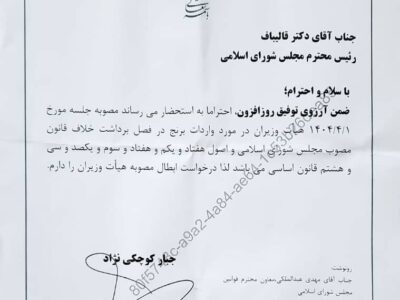 جناب آقای دکتر قالیباف
رئیس محترم مجلس شورای اسلامی
با سلام و احترام؛
ضمن آرزوی توفیق روزافزون، احتراما به استحضار می رساند مصوبه جلسه مورخ
۱۴۰۴/۴/۱ هیأت وزیران در مورد واردات برنج در فصل برداشت خلاف قانون
مصوب مجلس شورای اسلامی و اصول هفتاد و یکم و هفتاد و سوم و یکصد و سی
و هشتم قانون اساسی می باشد لذا درخواست ابطال مصوبه هیأت وزیران را دارم.
جبار کوچکی نژاد
رونوشت
جناب آقای مهدی عبدالملکی معاون محترم قوانین
مجلس شورای اسلامی